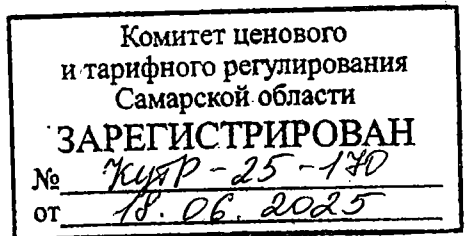 Комитет ценового
и тарифного регулирования
Самарской области
ЗАРЕГИСТРИРОВАН
№ КЦТР-25-170
от 18.06.2025